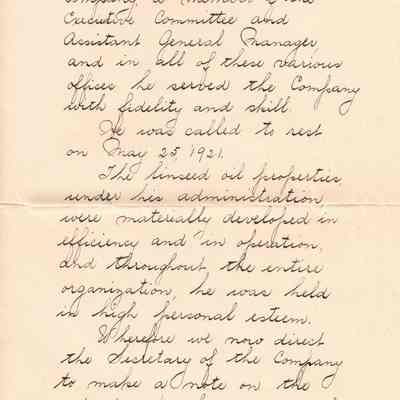 Company, a member of the
Executive Committee and
Assistant General Manager,
and in all of these various
offices he served the Company
with fidelity and skill.
He was called to rest
on May 25, 1921.
The linseed oil properties,
under his administration,
were materially developed in
efficiency and in operation,
and throughout, the entire
organization, he was held
in high personal esteem.
Wherefore we now direct
the Secretary of the Company
to make a note on the